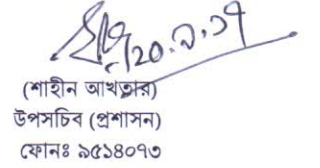 ২০.৯.১৭
(শাহীন আখতার)
উপসচিব (প্রশাসন)
ফোনঃ ৯৫১৪০৭৩